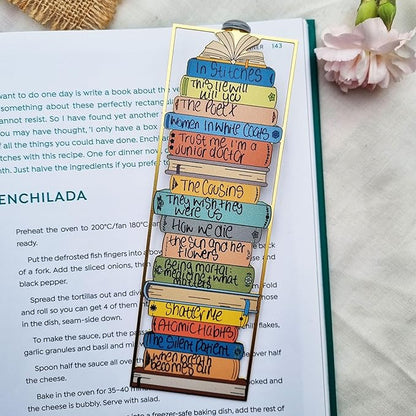 143
want to do one day is write a book about the
something about these perfectly rectangular
annot resist. So I have found yet another
you may have thought, 'I only have a box
f all the things you could have done. Ench
tches with this recipe. One for dinner now,
th. Just halve the ingredients if you prefer
ENCHILADA
Preheat the oven to 200°C/fan 180°C
ready.
Put the defrosted fish fingers into a
of a fork. Add the sliced onions,
black pepper.
Spread the tortillas out and
and roll so you can get 4 of them
in the dish, seam-side down.
To make the sauce, put the pass
garlic granules and basil and mi
Spoon half the sauce all over
the cheese.
Bake in the oven for 35–40
the cheese is bubbly. Serve with salad.
into a freezer-safe baking dish, add the rest of
In Stitches
This lie will
kill you
The Poet X
Women In White Coats
Trust me I'm a
junior doctor
The Cousins
They wish they
were us
How we die
the sun and her
flowers
Being mortal:
medicine + what
matters
Shatter Me
Atomic Habits
The Silent Patient
when breath
becomes air